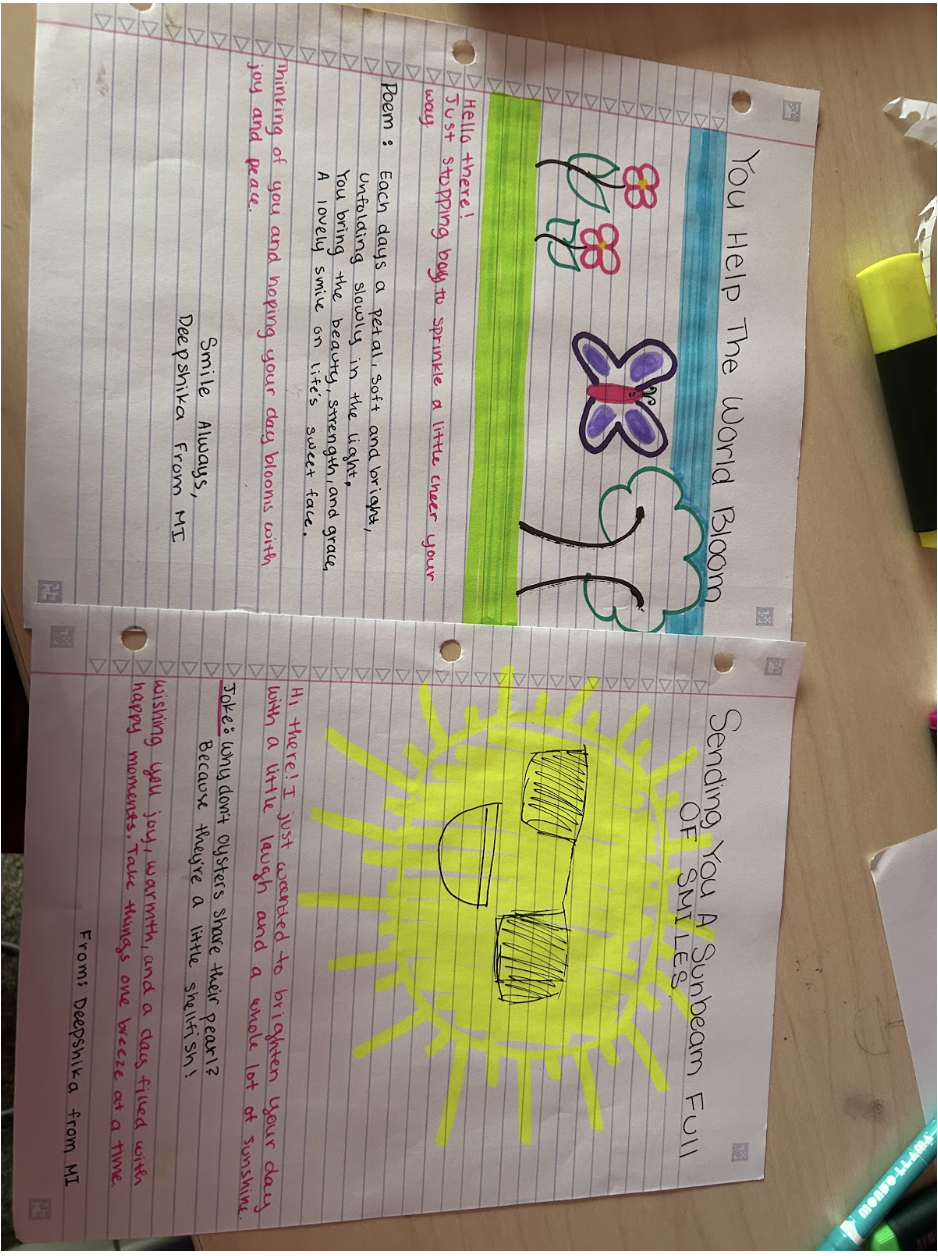 You Help The World Bloom
Hello there!
Just stopping bay to sprinkle a little cheer your
way
Poem: Each days a petal, soft and bright,
unfolding slowly in the light,
You bring the beauty, strength, and grace,
A lovely smile on life's sweet face.
Thinking of you and hoping your day blooms with
joy and peace.
Smile Always,
Deepshika From MI
Sending You A Sunbeam Full
OF SMILES
Hi there! I just wanted to brighten your day
with a little laugh and a whole lot of sunshine.
Joke: Why don't oysters share their pearl?
Because they're a little shellfish!
Wishing you joy, warmth, and a day filled with
happy moments. Take things one breeze at a time.
From: Deepshika from MI
MONDO-LLAMA